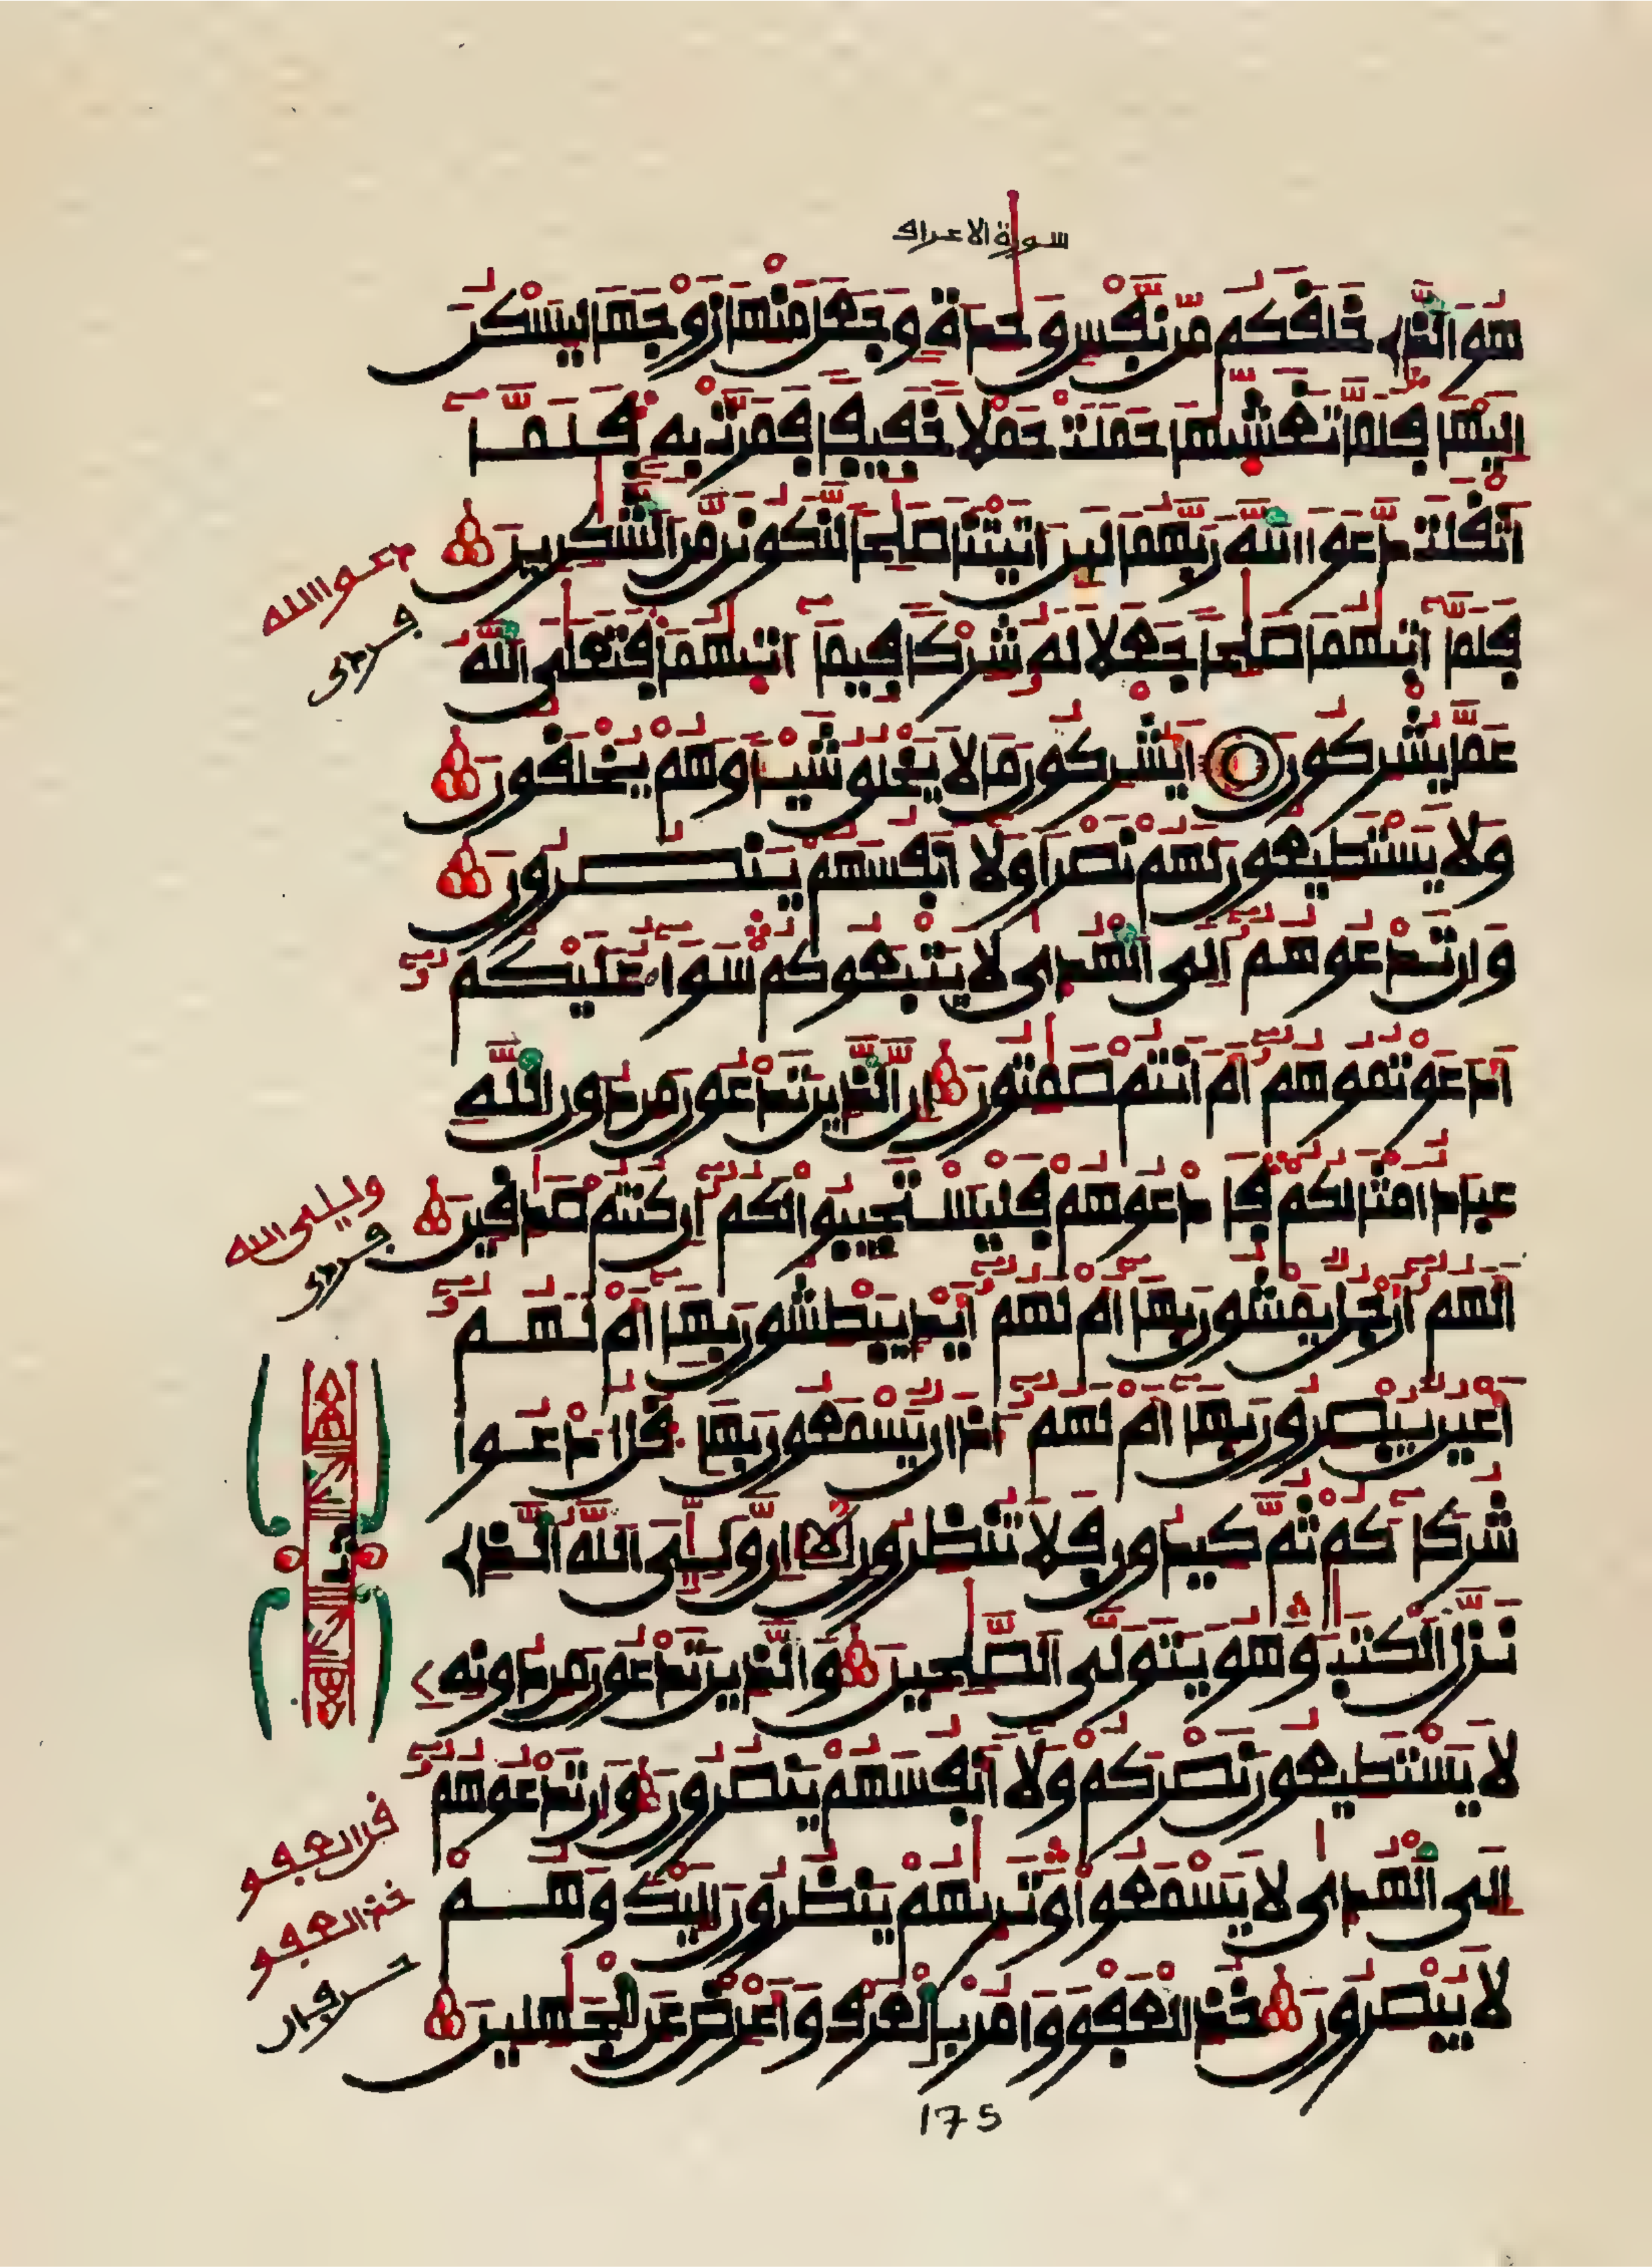 سورة الاعراف
هُوَ الَّذِے خَلَقَكُم مِّن نَّفْسٍ وَٰحِدَةٍ وَجَعَلَ مِنْهَا زَوْجَهَا لِيَسْكُنَ
إِلَيْهَا فَلَمَّا تَغَشَّيٰهَا حَمَلَتْ حَمْلًا خَفِيفًا فَمَرَّتْ بِهِۦ فَلَمَّآ
أَثْقَلَت دَّعَوَا اللَّهَ رَبَّهُمَا لَئِنَ اٰتَيْتَنَا صَٰلِحًا لَّنَكُونَنَّ مِنَ الشَّٰكِرِينَ
دعوا الله
فَلَمَّآ ءَاتَيٰهُمَا صَٰلِحًا جَعَلَا لَهُۥ شِرْكًا فِيمَآ ءَاتَيٰهُمَا فَتَعَٰلَى اللَّهُ
عَمَّا يُشْرِكُونَ أَيُشْرِكُونَ مَا لَا يَخْلُقُ شَيْـًٔا وَهُمْ يُخْلَقُونَ
وَلَا يَسْتَطِيعُونَ لَهُمْ نَصْرًا وَلَآ أَنفُسَهُمْ يَنصُرُونَ
وَإِن تَدْعُوهُمُۥٓ إِلَى الْهُدَىٰ لَا يَتْبَعُوكُمْ سَوَآءٌ عَلَيْكُمُۥٓ
أَدَعَوْتُمُوهُمُۥٓ أَمَ اَنتُمْ صَٰمِتُونَ إِنَّ الَّذِينَ تَدْعُونَ مِن دُونِ اللَّهِ
عِبَادٌ اَمْثَالُكُمْ فَادْعُوهُمْ فَلْيَسْتَجِيبُوا لَكُمُۥٓ إِن كُنتُمْ صَٰدِقِينَ
وليى الله
أَلَهُمُۥٓ أَرْجُلٌ يَمْشُونَ بِهَآ أَمْ لَهُمُۥٓ أَيْدٍ يَبْطِشُونَ بِهَآ أَمْ لَهُمُۥٓ
أَعْيُنٌ يُبْصِرُونَ بِهَآ أَمْ لَهُمُۥٓ ءَاذَانٌ يَسْمَعُونَ بِهَا قُلُ اُدْعُوا
شُرَكَآءَكُمْ ثُمَّ كِيدُونِ فَلَا تُنظِرُونِ إِنَّ وَلِـِّۧىَ اللَّهُ الَّذِے
نَزَّلَ الْكِتَٰبَ وَهُوَ يَتَوَلَّى الصَّٰلِحِينَ وَالَّذِينَ تَدْعُونَ مِن دُونِهِۦ
لَا يَسْتَطِيعُونَ نَصْرَكُمْ وَلَآ أَنفُسَهُمْ يَنصُرُونَ وَإِن تَدْعُوهُمُۥٓ
إِلَى الْهُدَىٰ لَا يَسْمَعُوا وَتَرَىٰهُمْ يَنظُرُونَ إِلَيْكَ وَهُمْ
خذ العفو
لَا يُبْصِرُونَ خُذِ الْعَفْوَ وَامُرْ بِالْعُرْفِ وَأَعْرِضْ عَنِ الْجَٰهِلِينَ
175